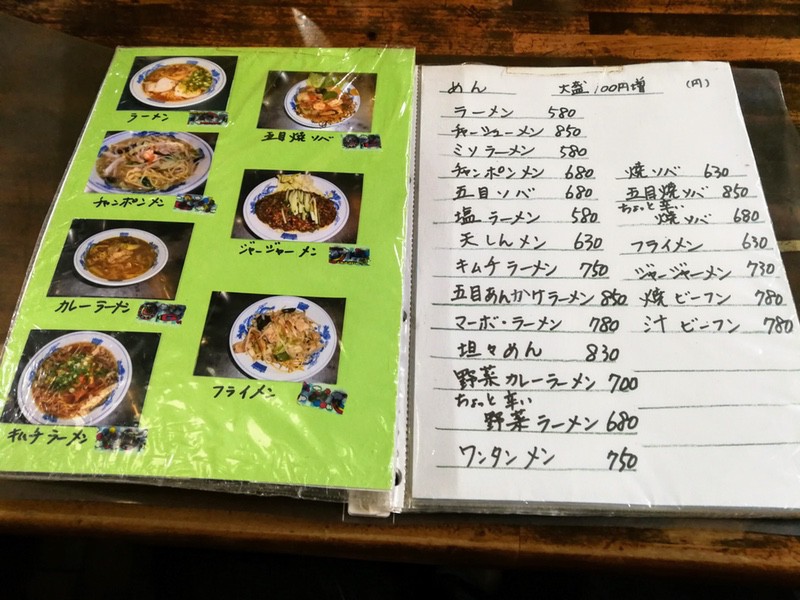 ラーメン
五目焼ソバ
チャンポンメン
ジャージャーメン
カレーラーメン
フライメン
キムチラーメン
めん 大盛100円増 (円)
ラーメン 580
チャーシューメン 850
ミソラーメン 580
チャンポンメン 680
五目ソバ 680
塩ラーメン 580
天しんメン 630
キムチラーメン 750
五目あんかけラーメン 850
マーボ・ラーメン 780
坦々めん 830
野菜カレーラーメン 700
ちょっと辛い
野菜ラーメン 680
ワンタンメン 750
焼ソバ 630
五目焼ソバ 850
ちょっと辛い
焼ソバ 680
フライメン 630
ジャージャーメン 730
焼ビーフン 780
汁ビーフン 780